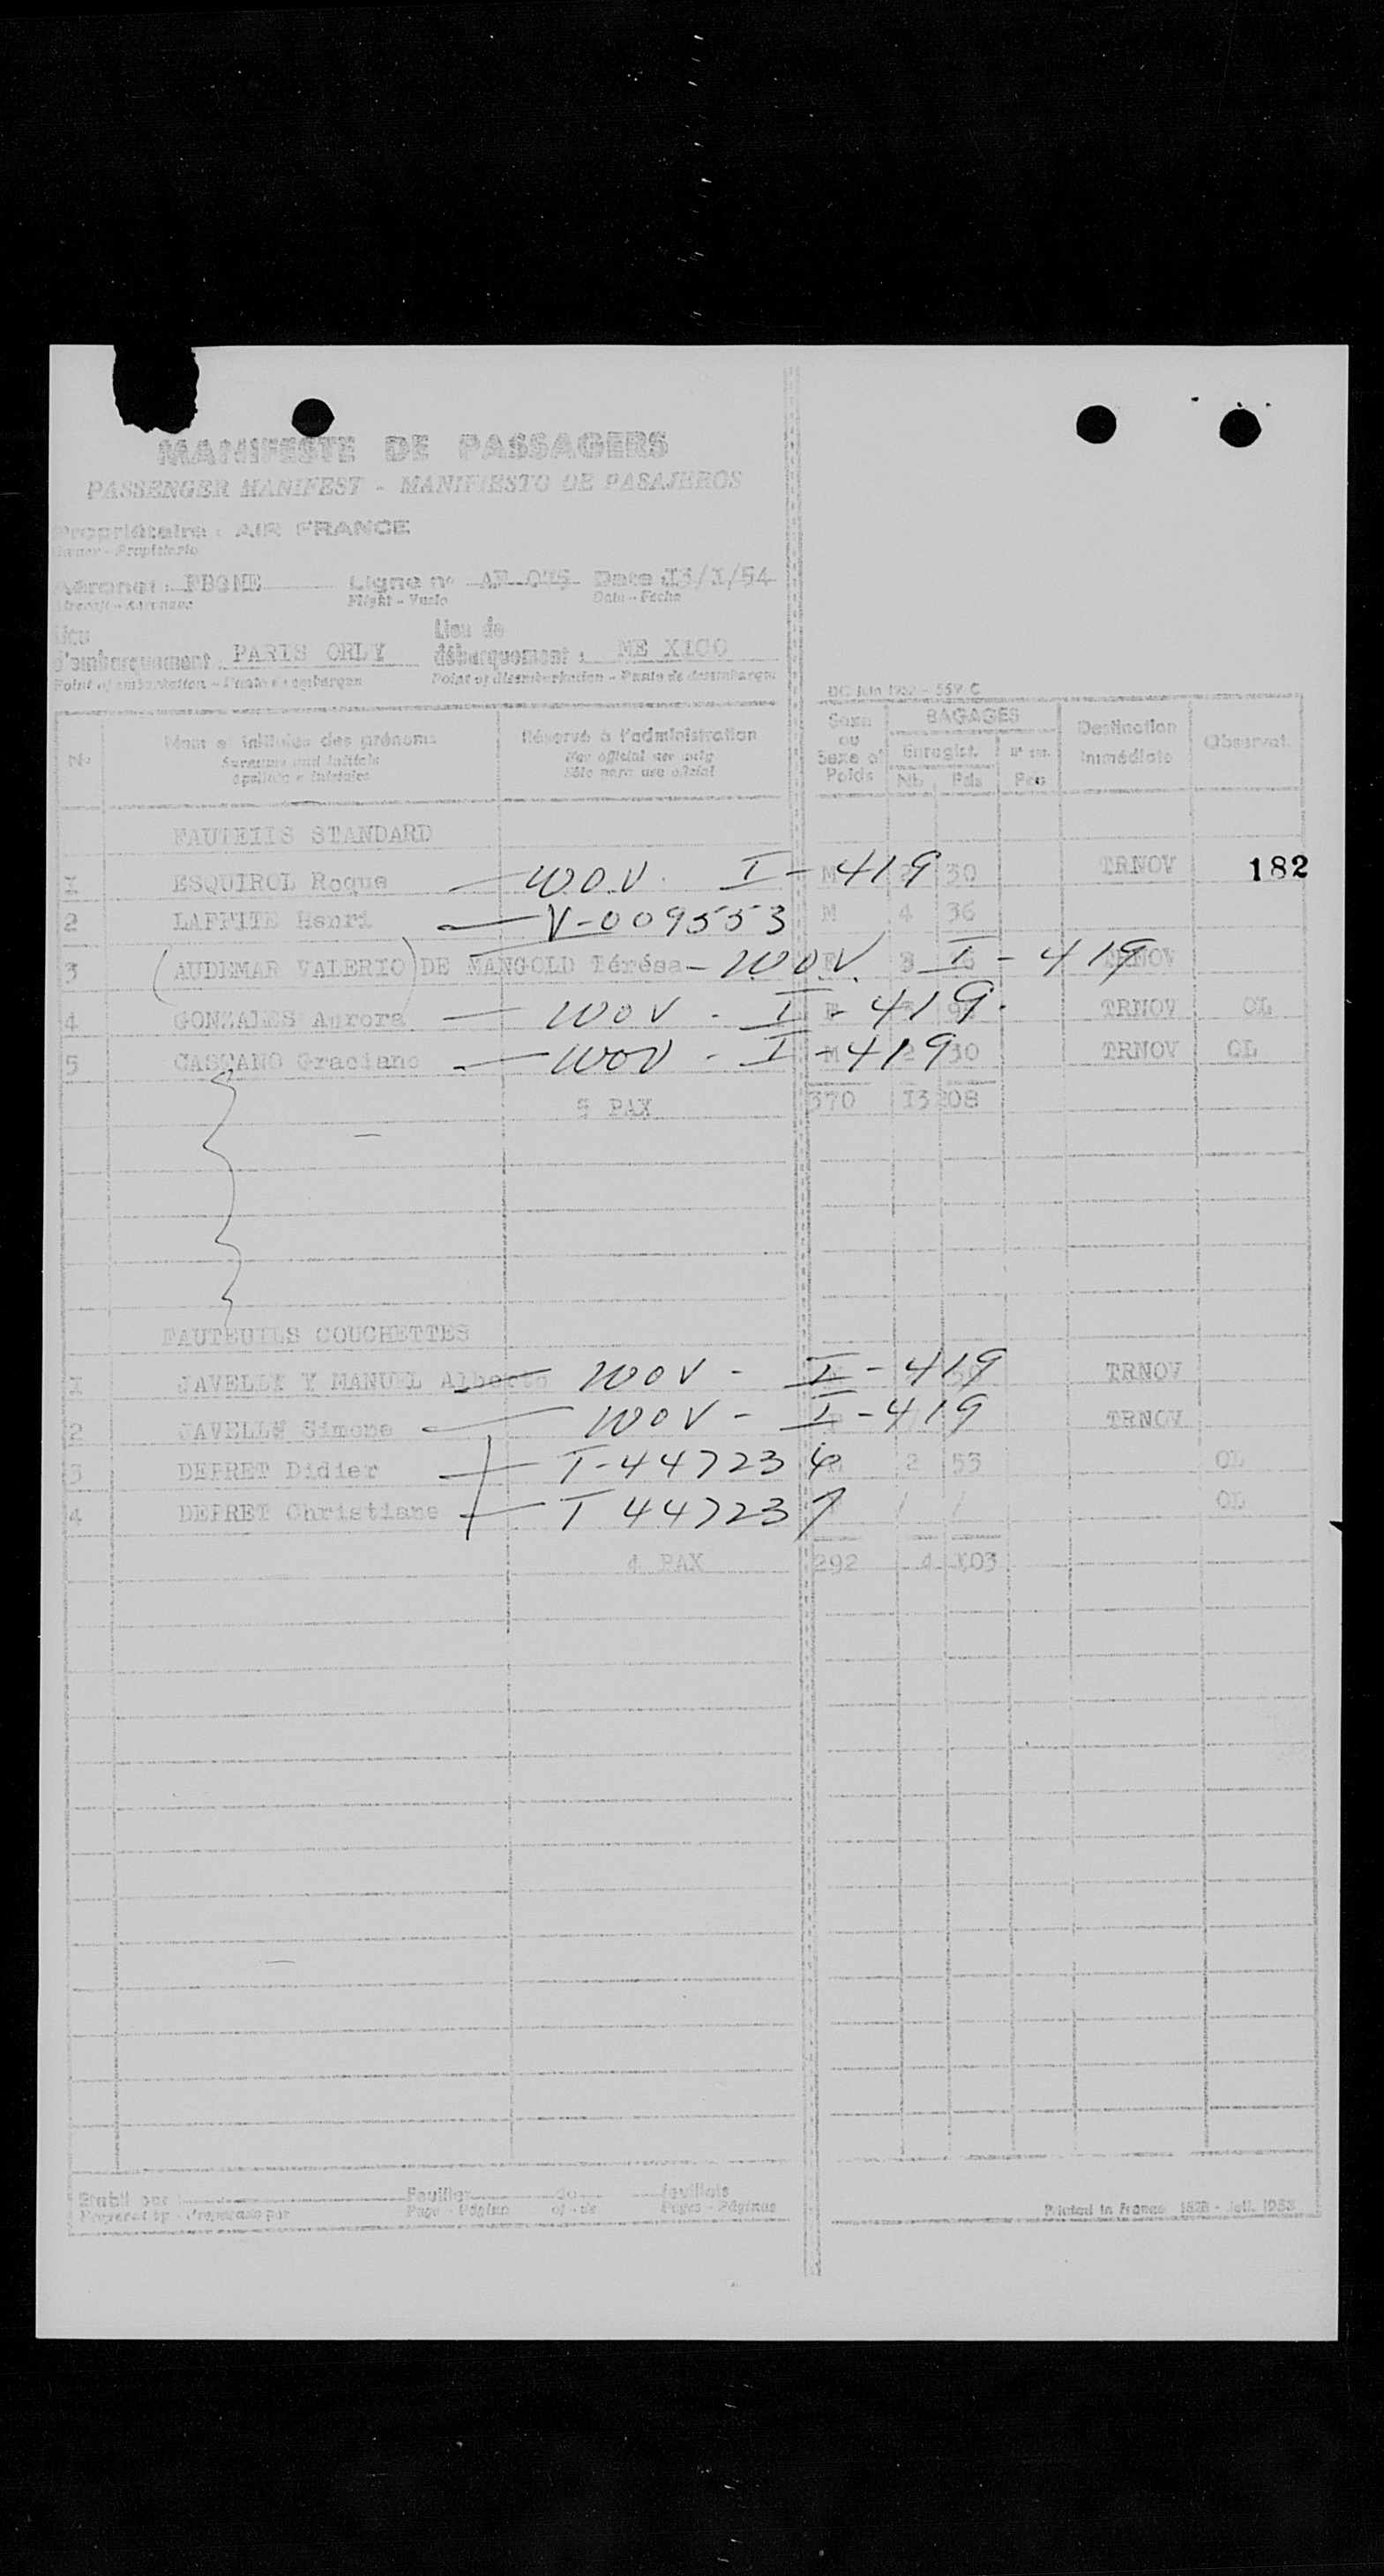 MANIFESTE DE PASSAGERS
PASSENGER MANIFEST - MANIFIESTO DE PASAJEROS
Propriétaire : AIR FRANCE
Owner - Propietario
Aéronef : FBGNE Ligne n° AF 075 Date 13/1/54
Flight - Vuelo Date - Fecha
Lieu d'embarquement : PARIS ORLY Lieu de débarquement : ME XICO
Point of embarkation - Punto de embarque Point of disembarkation - Punto de desembarque
N° Nom et initiales des prénoms Réservé à l'administration Sexe ou Poids BAGAGES Enregist. Nb Pds Destination Immédiate Observat.
Surname and initials For official use only
Apellido e iniciales Sólo para uso oficial
FAUTEIIS STANDARD
1 ESQUIROL Roque — WOV. I - 419 M 30 TRNOV 182
2 LAFFITE Henri — V-009553 M 4 36
3 (AUDEMAR VALERIO) DE MANGOLD Térésa - WOV. 3 I - 419 TRNOV
4 GONZALES Aurora — WOV - I - 419. TRNOV OL
5 CASTANO Graciano — WOV - I - 419 M 2 30 TRNOV OL
5 PAX 370 13 208
FAUTEUILS COUCHETTES
1 JAVELLY Y MANUEL Alberto — WOV - I - 419 TRNOV
2 JAVELLY Simone — WOV - I - 419 TRNOV
3 DEPRET Didier — I-447236 2 53 OL
4 DEPRET Christiane — I 447237 / / OL
4 PAX 292 4 103
Etabli par Feuillet de feuillets
Prepared by - Preparado por Page - Página of - de Pages - Páginas
Printed in France